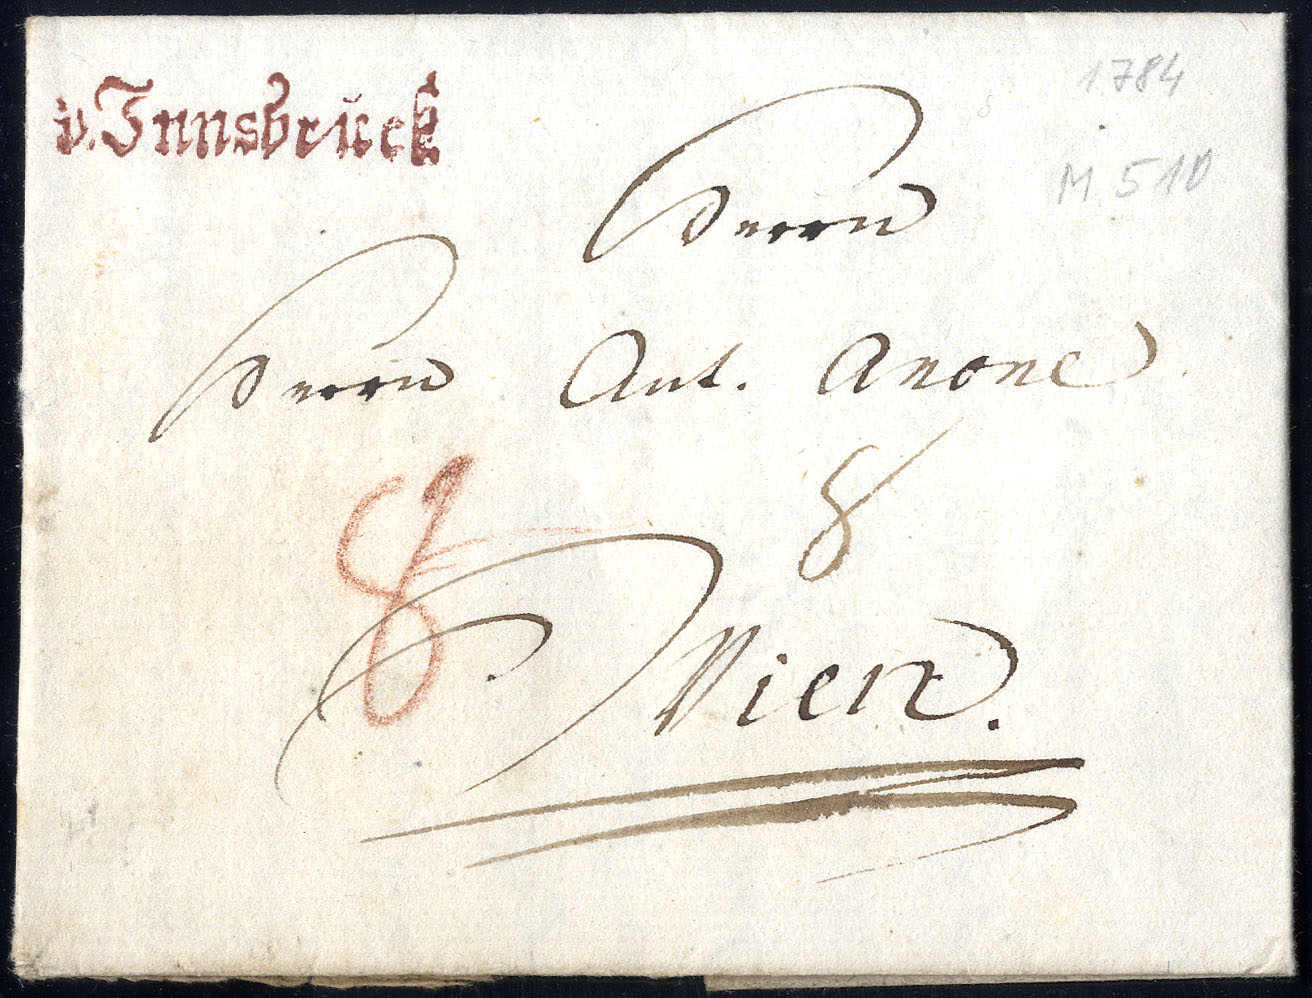 v. Innsbruck
1784
M 510
Herrn
Herrn Ant. Anone
8
8
Wien.